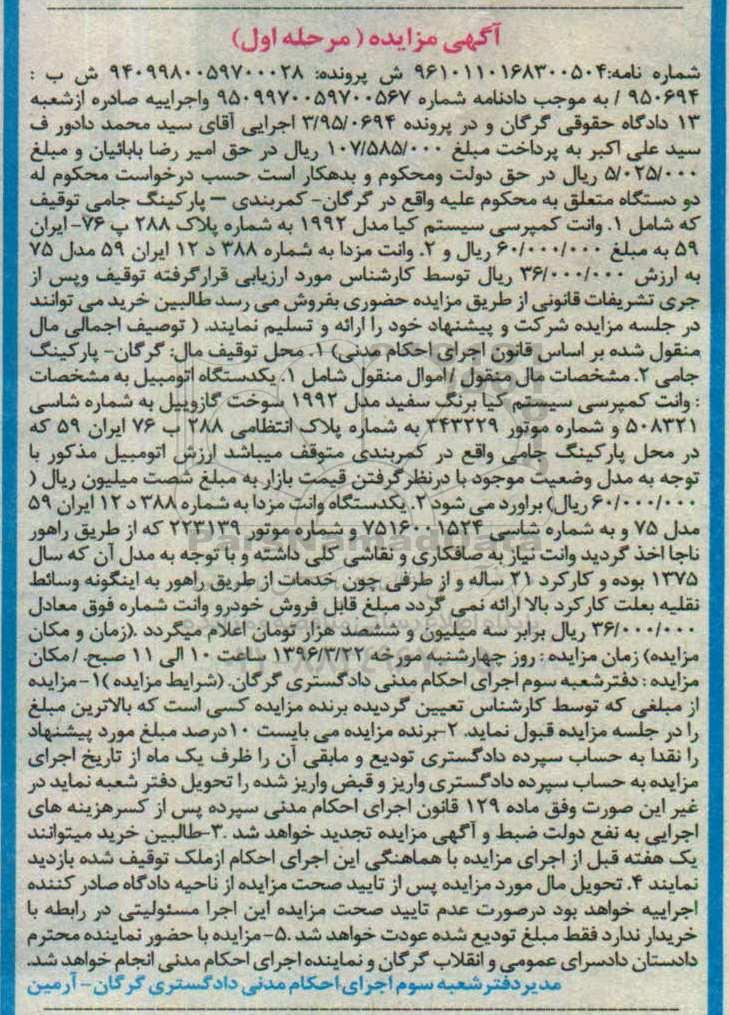 آگهی مزایده ( مرحله اول)
شماره نامه:۹۶۱۰۱۱۰۱۶۸۳۰۰۵۰۴ ش پرونده: ۹۴۰۹۹۸۰۰۵۹۷۰۰۰۲۸ ش ب :
۹۵۰۶۹۴ / به موجب دادنامه شماره ۹۵۰۹۹۷۰۰۵۹۷۰۰۵۶۷ واجراییه صادره ازشعبه
۱۳ دادگاه حقوقی گرگان و در پرونده ۳/۹۵/۰۶۹۴ اجرایی آقای سید محمد دادور ف
سید علی اکبر به پرداخت مبلغ ۱۰۷/۵۸۵/۰۰۰ ریال در حق امیر رضا بابائیان و مبلغ
۵/۰۲۵/۰۰۰ ریال در حق دولت ومحکوم و بدهکار است حسب درخواست محکوم له
دو دستگاه متعلق به محکوم علیه واقع در گرگان- کمربندی – پارکینگ جامی توقیف
که شامل ۱. وانت کمپرسی سیستم کیا مدل ۱۹۹۲ به شماره پلاک ۲۸۸ پ ۷۶- ایران
۵۹ به مبلغ ۶۰/۰۰۰/۰۰۰ ریال و ۲. وانت مزدا به شماره ۳۸۸ د ۱۲ ایران ۵۹ مدل ۷۵
به ارزش ۳۶/۰۰۰/۰۰۰ ریال توسط کارشناس مورد ارزیابی قرارگرفته توقیف وپس از
جری تشریفات قانونی از طریق مزایده حضوری بفروش می رسد طالبین خرید می توانند
در جلسه مزایده شرکت و پیشنهاد خود را ارائه و تسلیم نمایند. ( توصیف اجمالی مال
منقول شده بر اساس قانون اجرای احکام مدنی) ۱. محل توقیف مال: گرگان- پارکینگ
جامی ۲. مشخصات مال منقول /اموال منقول شامل ۱. یکدستگاه اتومبیل به مشخصات
: وانت کمپرسی سیستم کیا برنگ سفید مدل ۱۹۹۲ سوخت گازوییل به شماره شاسی
۵۰۸۳۲۱ و شماره موتور ۳۴۳۲۲۹ به شماره پلاک انتظامی ۲۸۸ ب ۷۶ ایران ۵۹ که
در محل پارکینگ جامی واقع در کمربندی متوقف میباشد ارزش اتومبیل مذکور با
توجه به مدل وضعیت موجود با درنظر گرفتن قیمت بازار به مبلغ شصت میلیون ریال (
۶۰/۰۰۰/۰۰۰ ریال) براورد می شود ۲. یکدستگاه وانت مزدا به شماره ۳۸۸ د ۱۲ ایران ۵۹
مدل ۷۵ و به شماره شاسی ۷۵۱۶۰۰۱۵۲۴ و شماره موتور ۲۲۳۱۳۹ که از طریق راهور
ناجا اخذ گردید وانت نیاز به صافکاری و نقاشی کلی داشته و با توجه به مدل آن که سال
۱۳۷۵ بوده و کارکرد ۲۱ ساله و از طرفی چون خدمات از طریق راهور به اینگونه وسائط
نقلیه بعلت کارکرد بالا ارائه نمی گردد مبلغ قابل فروش خودرو وانت شماره فوق معادل
۳۶/۰۰۰/۰۰۰ ریال برابر سه میلیون و ششصد هزار تومان اعلام میگردد .(زمان و مکان
مزایده) زمان مزایده : روز چهارشنبه مورخه ۱۳۹۶/۳/۲۲ ساعت ۱۰ الی ۱۱ صبح. /مکان
مزایده : دفترشعبه سوم اجرای احکام مدنی دادگستری گرگان. (شرایط مزایده )۱- مزایده
از مبلغی که توسط کارشناس تعیین گردیده برنده مزایده کسی است که بالاترین مبلغ
را در جلسه مزایده قبول نماید. ۲-برنده مزایده می بایست ۱۰درصد مبلغ مورد پیشنهاد
را نقدا به حساب سپرده دادگستری تودیع و مابقی آن را ظرف یک ماه از تاریخ اجرای
مزایده به حساب سپرده دادگستری واریز و قبض واریز شده را تحویل دفتر شعبه نماید در
غیر این صورت وفق ماده ۱۲۹ قانون اجرای احکام مدنی سپرده پس از کسرهزینه های
اجرایی به نفع دولت ضبط و آگهی مزایده تجدید خواهد شد .۳-طالبین خرید میتوانند
یک هفته قبل از اجرای مزایده با هماهنگی این اجرای احکام ازملک توقیف شده بازدید
نمایند ۴. تحویل مال مورد مزایده پس از تایید صحت مزایده از ناحیه دادگاه صادر کننده
اجراییه خواهد بود درصورت عدم تایید صحت مزایده این اجرا مسئولیتی در رابطه با
خریدار ندارد فقط مبلغ تودیع شده عودت خواهد شد .۵-مزایده با حضور نماینده محترم
دادستان دادسرای عمومی و انقلاب گرگان و نماینده اجرای احکام مدنی انجام خواهد شد.
مدیردفترشعبه سوم اجرای احکام مدنی دادگستری گرگان - آرمین